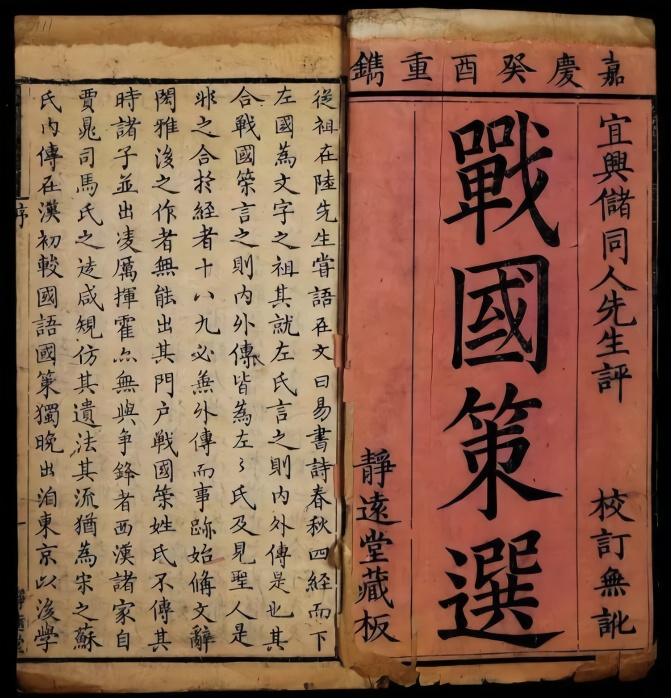 嘉慶癸酉重鐫
宜興儲同人先生評 校訂無訛
戰國策選
靜遠堂藏板
從祖在陸先生嘗語在文曰易書詩春秋四經而下
左國為文字之祖其就左氏言之則內外傳是也其
合戰國策言之則內外傳皆為左々氏及見聖人是
非之合於經者十八九必無外傳而事跡始備文辭
閎雅後之作者無能出其門戶戰國策姓氏不傳其
時諸子並出凌厲揮霍亦無與爭鋒者西漢諸家自
賈晁司馬氏之徒咸規仿其遺法其流猶為宋之蘇
氏內傳在漢初較國語國策獨晚出洎東京以後學
序
一